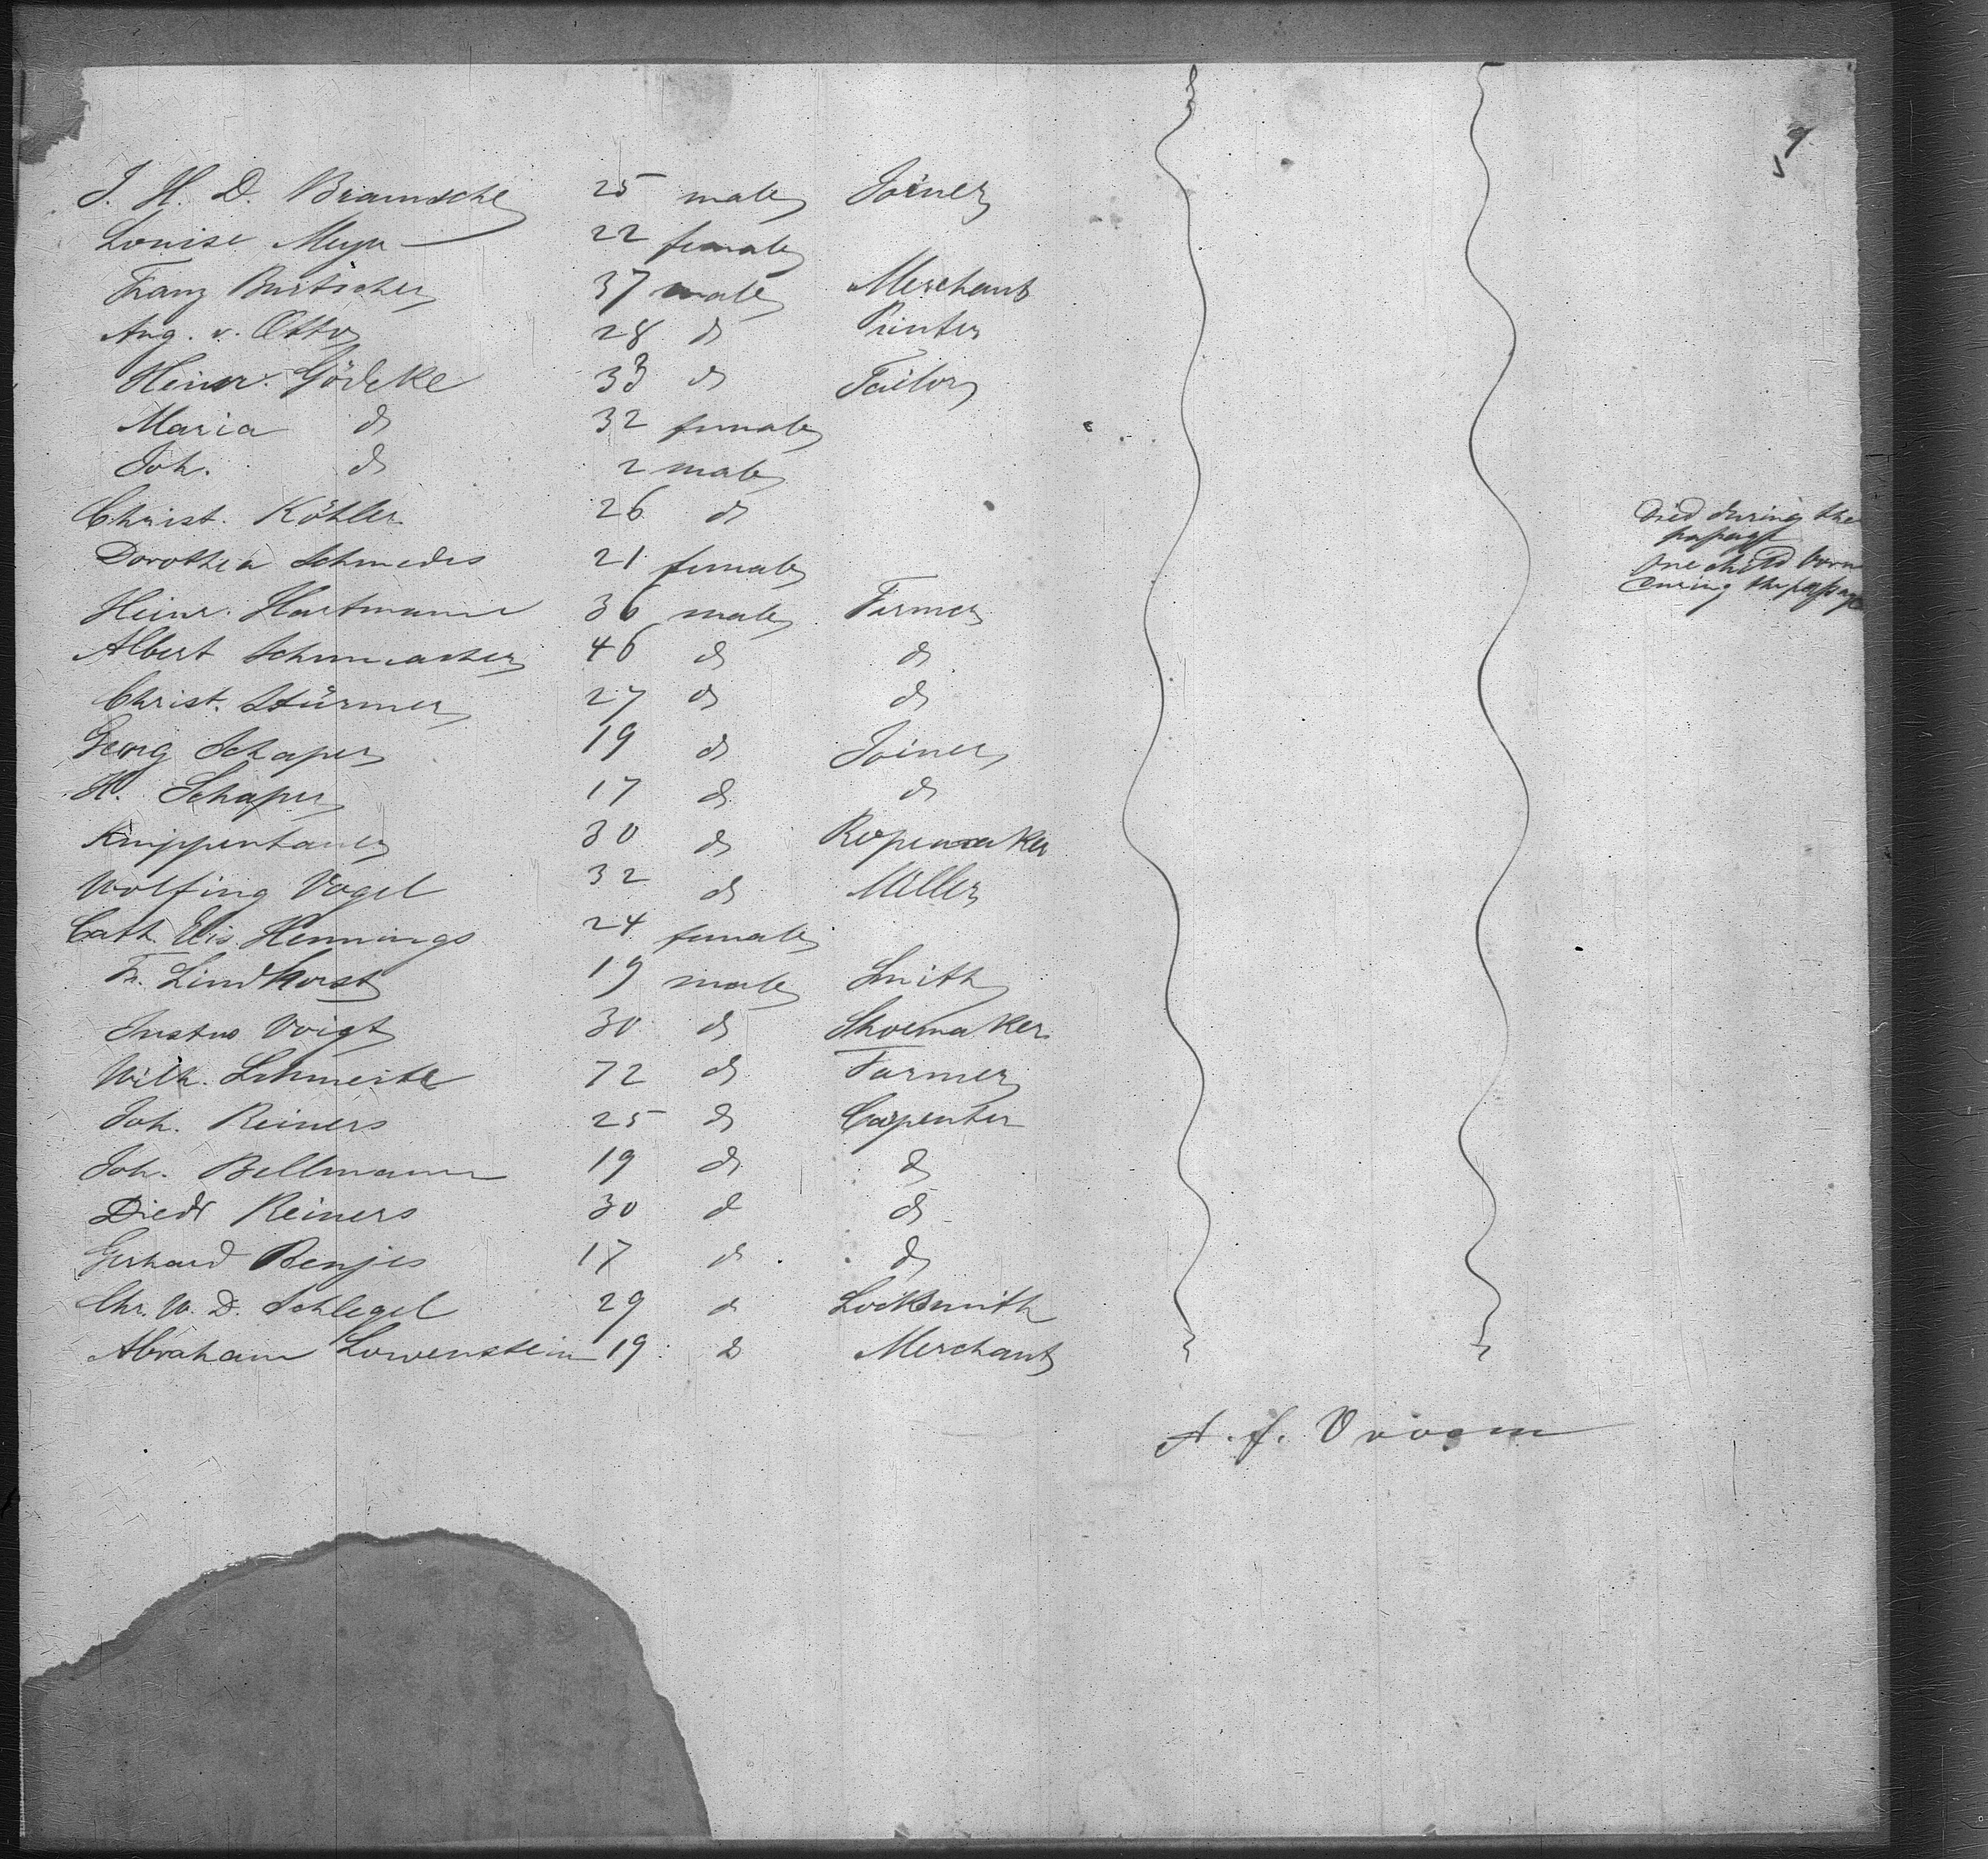 9
J. H. D. Bramsche 25 male Joiner
Louise Meyer 22 female
Franz Burtscher 37 male Merchant
Aug. v. Otto 28 do Printer
Heinr. Gödeke 33 do Tailor
Maria do 32 female
Joh. do 2 male
Christ. Köhler 26 do Died during the passage
Dorothea Schmedes 21 female One child born during the passage
Heinr. Hartmann 36 male Farmer
Albert Schumacher 46 do do
Christ. Stürmer 27 do do
Georg Schaper 19 do Joiner
H. Schaper 17 do do
30 do Ropemaker
Wolfing Vogel 32 do Miller
Cath. Elis. Hennings 24 female
Fr. Lindhorst 19 male Smith
Justus Voigt 30 do Shoemaker
Wilh. 72 do Farmer
Joh. Reiners 25 do Carpenter
Joh. Bellmann 19 do do
Diedr Reiners 30 do do
Gerhard Renjes 17 do do
Chr. W. D. Schlegel 29 do Locksmith
Abraham Lowenstein 19 do Merchant
A. f. Vroom